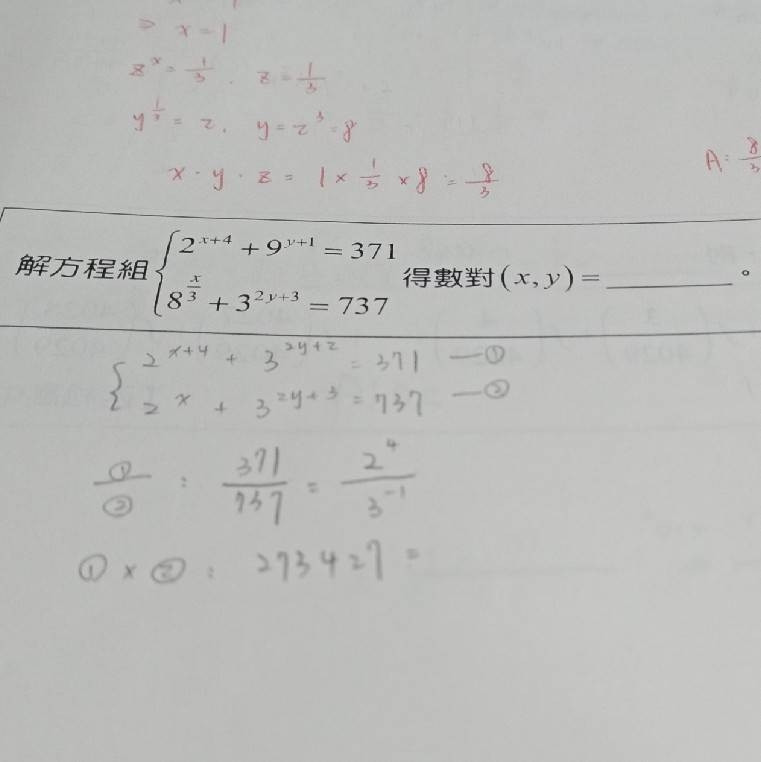 ⇒ x = 1
z^x = 1/3 . z = 1/3
y^(1/3) = 2 , y = 2^3 = 8
x · y · z = 1 × 1/3 × 8 = 8/3
A: 8/3
解方程組 { 2^(x+4) + 9^(y+1) = 371
8^(x/3) + 3^(2y+3) = 737 得數對 (x, y) = ________ 。
{ 2^(x+4) + 3^(2y+2) = 371 —①
2^x + 3^(2y+3) = 737 —②
①/② : 371/737 = 2^4/3^(-1)
① × ② : 273427 =